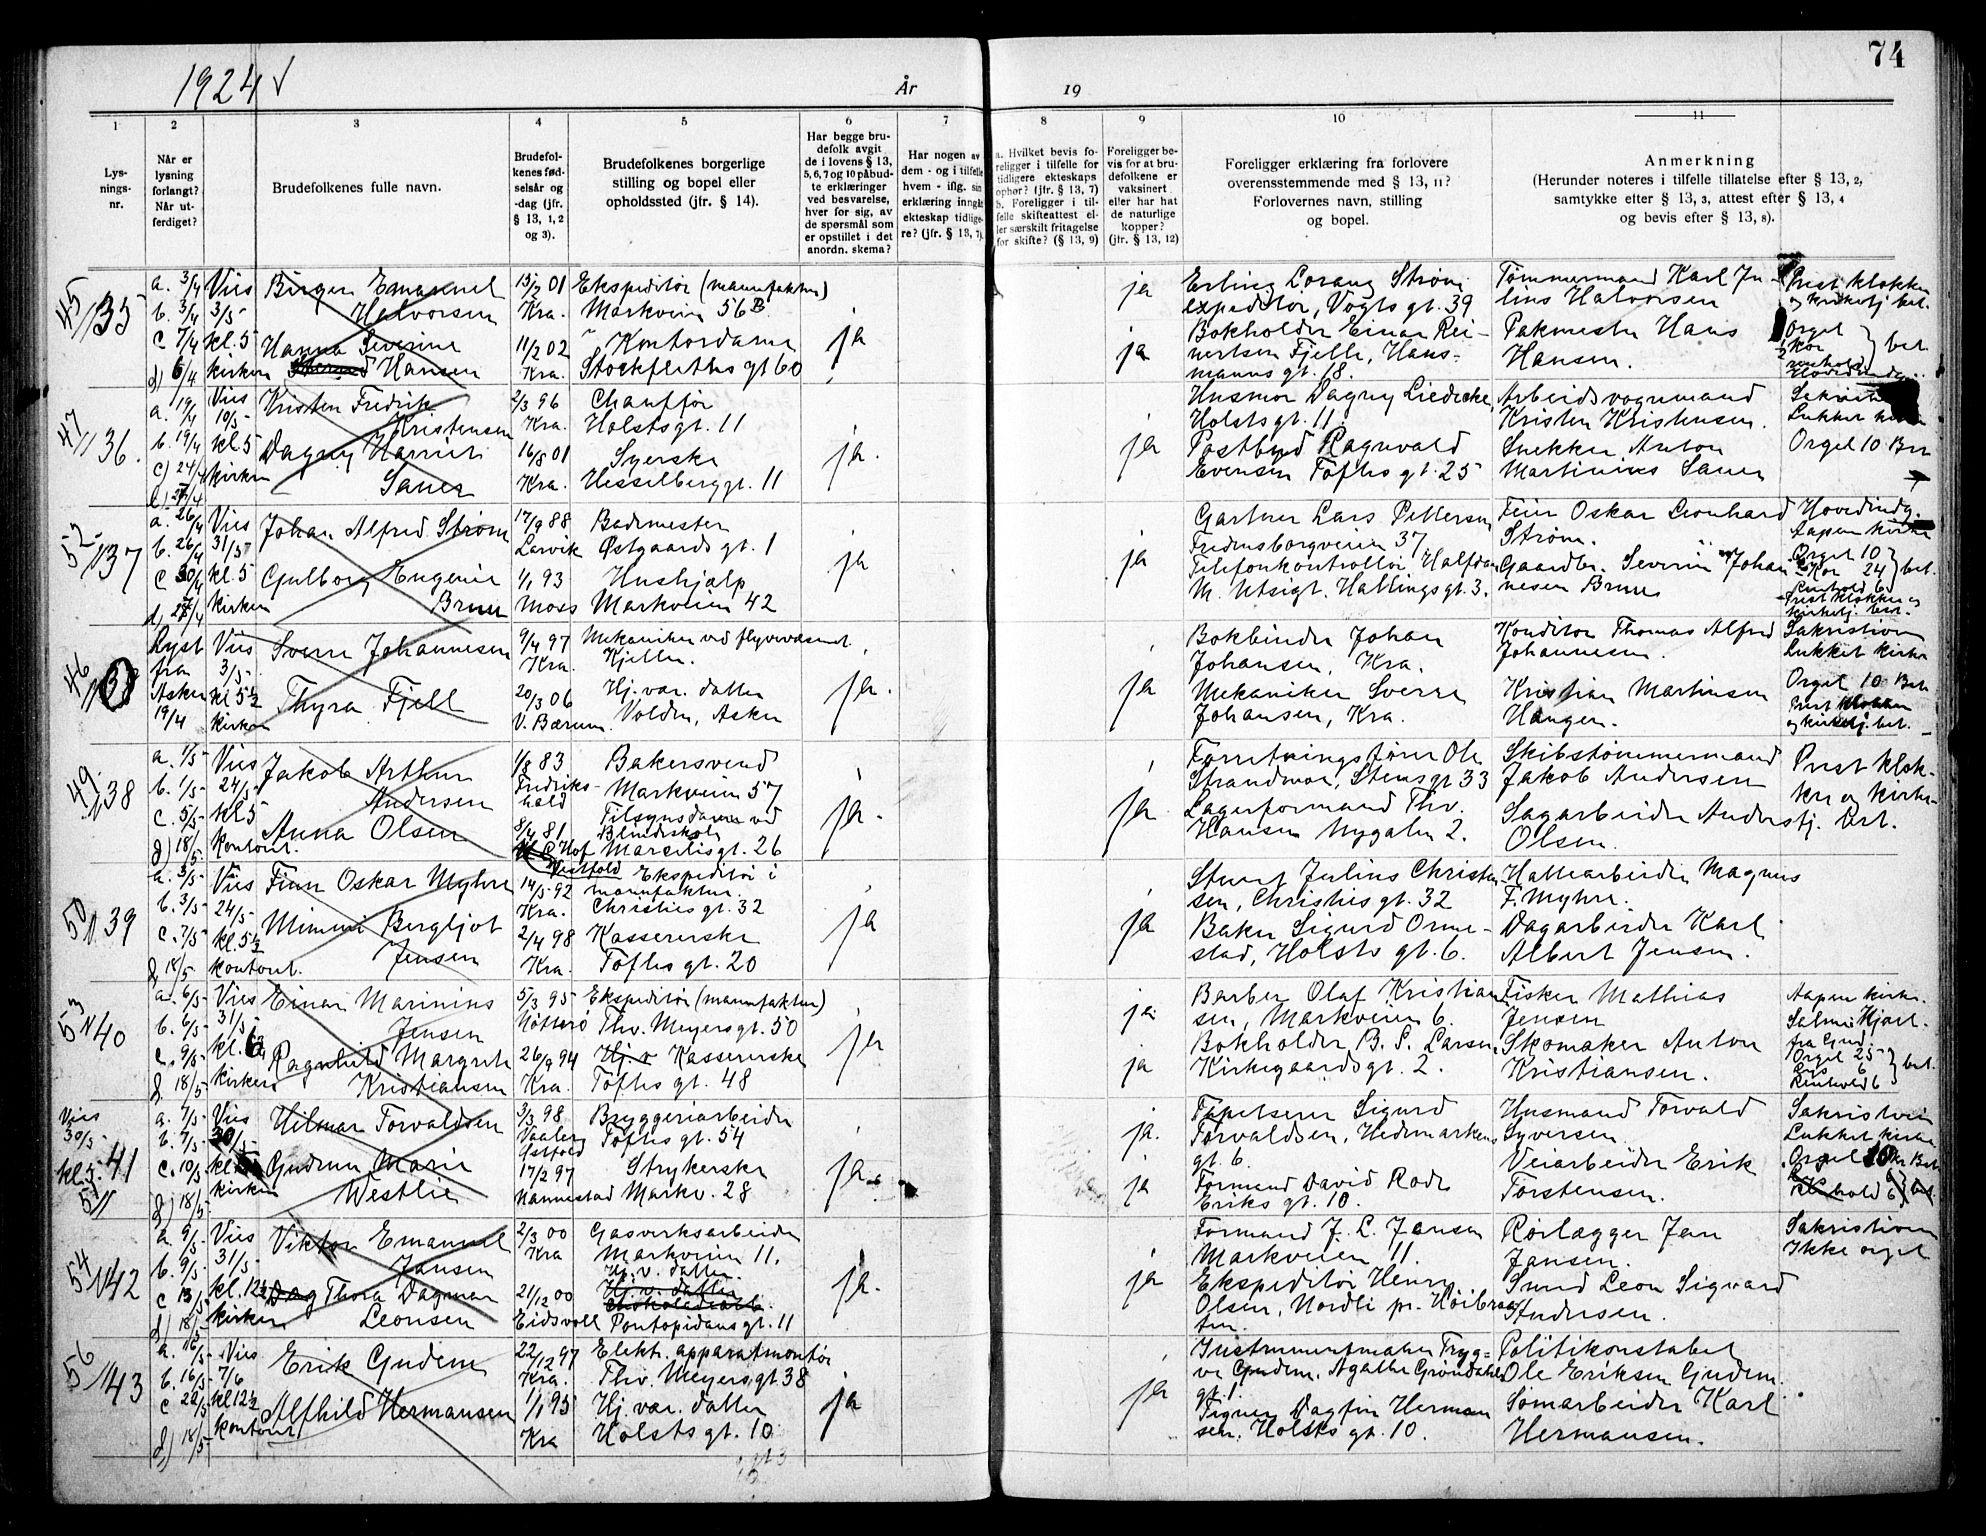 1924 √
År
19
74
1
2
3
4
5
6
7
8
9
10
11
Lys-
nings-
nr.
Når er
lysning
forlangt?
Når ut-
ferdiget?
Brudefolkenes fulle navn.
Brudefol-
kenes fød-
selsår og
-dag (jfr.
§ 13, 1, 2
og 3).
Brudefolkenes borgerlige
stilling og bopel eller
opholdssted (jfr. § 14).
Har begge bru-
defolk avgit
de i lovens § 13,
5, 6, 7 og 10 påbud-
te erklæringer
ved besvarelse,
hver for sig, av
de spørsmål som
er opstillet i det
anordn. skema?
Har nogen av
dem - og i tilfelle
hvem - iflg. sin
erklæring inngått
ekteskap tidlige-
re? (jfr. § 13, 7).
a. Hvilket bevis fo-
religger i tilfelle for
tidligere ekteskaps
ophør? (jfr. § 13, 7)
b. Foreligger i til-
felle skifteattest el-
ler særskilt fritagelse
for skifte? (§ 13, 9)
Foreligger be-
vis for at bru-
defolkene er
vaksinert
eller har hat
de naturlige
kopper?
(jfr. § 13, 12)
Foreligger erklæring fra forlovere
overensstemmende med § 13, 11?
Forlovernes navn, stilling
og bopel.
Anmerkning
(Herunder noteres i tilfelle tillatelse efter § 13, 2,
samtykke efter § 13, 3, attest efter § 13, 4
og bevis efter § 13, 8).
45
35
a. 3/4
b. 3/4
c 7/4
d) 6/4
Vies
3/5
kl. 5
kirken
Birger Emanuel
Halvorsen
Hanna Severine
Hansen
13/2 01
Kra.
11/2 02
Kra.
Ekspeditør (manufaktur)
Markveien 56B
Kontordame
Stockfleths gt 60
ja
ja
ja
Erling Lorang Strøm
expeditør, Vogts gt. 39
Bokholder Einar Rei-
nertsen Fjelle, Haus-
manns gt. 18.
Tømmermand Karl Ju-
lius Halvorsen
Pakmester Hans
Hansen.
Prest klokker
og kirketj. bet.
Orgel
Kor
renhold
bet.
47
36.
a. 19/4
b. 19/4
c) 24/4
Vies
10/5
kl. 5
kirken
Kristen Fredrik
Kristensen
Dagny Harriet
Sauer
2/3 96
Kra.
16/8 01
Kra.
Chauffør
Holsts gt. 11
Syerske
Hesselberggt. 11
ja.
ja
Husmor Dagny Liedecke,
Holsts gt. 11.
Postbud Ragnvald
Evensen Tofts gt. 25
Arbeidsvognmand
Kristen Kristensen.
Snekker Anton
Martinius Sauer
Lukket kirke
Orgel 10 Bet
52
37
a. 26/4
b. 26/4
c 30/4
d, 28/4
Vies
31/5
kl. 5
kirken
Johan Alfred Strøm
Gulborg Eugenie
Bruu
17/9 88
Larvik
1/1 93
Moss
Bademester
Østgaards gt. 1
Hushjælp
Markveien 42
ja
ja
Gartner Lars Pettersen
Fredensborgveien 37
Telefonkontrollør Halfdan
M. Utsigt. Hallings gt. 3.
Feier Oskar Leonhard
Strøm.
Gaardbr. Severin Johan-
nesen Bruu
Hovedindg.
Aapen kirke
Orgel 10
Kor 24
bet.
Renhold 6
Prest klokker og
kirketj. bet.
46
Lyst
fra
Asker
19/4
Vies
3/5.
kl 5½
kirken
Sverre Johannesen
Thyra Fjell
9/4 97
Kra.
20/3 06
V. Bærum.
Mekaniker ved flyvevæsenet
Kjeller.
Hj. var. datter
Volden, Asker
ja.
ja
Bokbinder Johan
Johansen, Kra.
Mekaniker Sverre
Johansen, Kra.
Konditor Thomas Alfred
Johannesen.
Kristian Martinsen
Haugen.
Sakristien
Lukket kirke
Orgel 10 Bet
Prest klokker
og kirketj. bet.
49
38
a. 1/5
b. 1/5
c. 5/5
d) 18/5
Vies
24/5
kl 5
kontoret.
Jakob Arthur
Andersen
Anna Olsen
1/8 83
Fredriks-
hald
8/4 81
Hof
Vestfold
Bakersvend
Markveien 57
Tilsynsdame ved
Blindeskole
Marselisgt. 26
ja.
ja
Forretningsfører Ole
Strandmoe, Stensgt. 33
Lagerformand Thv.
Hansen Nygaten 2.
Skibstømmermand
Jakob Andersen
Sagarbeider Anders
Olsen.
Prest klok-
ker og kirke-
tj. bet.
50
39
a. 3/5
b. 3/5
c. 7/5
d, 18/5
Vies
24/5
kl. 5½
kontoret.
Finn Oskar Myhre
Mimmi Bergljot
Jensen
14/5 92
Kra.
2/4 98
Kra.
Ekspeditør i
manufaktur.
Christies gt. 32
Kassererske
Tofts gt. 20
ja
ja
Stuert Julius Christen-
sen, Christies gt. 32
Baker Sigurd Orme-
stad, Holsts gt. 6.
Hattearbeider Magnus
F. Myhre.
Dagarbeider Karl
Albert Jensen.
53
40
a. 6/5
b. 6/5
c. 9/5
d. 18/5
Vies
31/5
kl. 6
kirken
Einar Marinius
Jensen
Ragnhild Margrete
Kristiansen
5/3 95
Nøtterø
26/9 94
Kra.
Ekspeditør (manufaktur)
Thv. Meyers gt. 50
Hj. v Kassererske
Tofts gt. 48
ja
ja
ja
Barber Olaf Kristian-
sen, Markveien 6.
Bokholder B. S. Larsen,
Kirkegaardsgt. 2.
Fisker Mathias
Jensen
Skomaker Anton
Kristiansen.
Aapen kirke.
Orgel 25
Lys 6
Renhold 6
bet.
Vies
30/5
kl. 5.
41
a. 7/5
b. 7/5
c. 10/5
d) 18/5.
Vies
30/5
kl 5
kirken
Hilmar Torvaldsen
Gudrun Marie
Westlie
3/3 98
Vaaler
Østfold
17/2 97
Nannestad
Bryggeriarbeider
Tofts gt. 54
Strykerske
Markv. 28
ja.
ja.
ja
Tapetserer Sigurd
Torvaldsen, Hedemarkens
gt. 6.
Formand David Rode
Eriks gt. 10.
Husmand Torvald
Syversen.
Veiarbeider Erik
Torstensen.
Sakristien
Lukket kirke
Orgel 10 kr Bet
Renhold 6
bet.
54
42
a. 9/5
b. 9/5
c 13/5
d) 18/5
Vies
31/5
kl. 12½
kirken
Viktor Emanuel
Jansen
Dag Thora Dagmar
Leonsen
2/3 00
Kra
21/12 00
Eidsvoll
Gasverksarbeider
Markveien 11.
Hj. v. datter.
Hj. v. datter
Pontopidansgt. 11
ja.
ja
Formand J. L. Jansen
Markveien 11.
Ekspeditør Henry
Olsen, Nordli pr. Høibraa-
ten.
Rørlægger Jan
Jansen.
Smed Leon Sigvard
Andersen.
Sakristien
Ikke orgel
56
43
a. 16/5
b. 16/5
c 22/5
d) 18/5
Vies
7/6
kl 12½
kontoret
Erik Gudem
Alfhild Hermansen
22/12 97
Kra.
1/1 95
Kra
Elektr. apparatmontør
Thv. Meyersgt. 38
Hj. var. datter
Holsts gt. 10
ja
ja
Instrumentmaker Tryg-
ve Gudem, Agathe Grøndahls
gt. 1.
Tegner Dagfin Herman
sen. Holsts gt. 10.
Politikonstabel
Ole Eriksen Gudem.
Sømarbeider Karl
Hermansen.